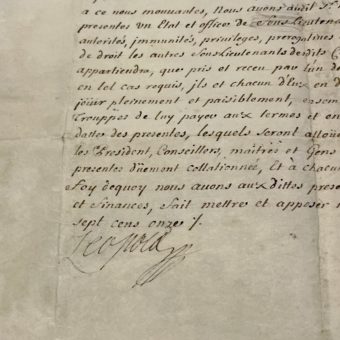 a ce nous mouvantes, Nous avons audit S.r
presentes un Etat et office de Sous Lieutena
autorités, immunités, privileges, prerogatives
de droit les autres Souslieutenants desdits
appartiendra, que pris et receu par l'un de
en tel cas requis, ils et chacun d'Eux en d
jouir pleinement et paisiblement, ensem
Trouppes de luy payer aux termes et en
datte des presentes, lesquels seront alloüe
les President, Conseillers, maîtres et Gens
presentes düement collationnée, Et à chacu
Foy dequoy nous avons aux dittes prese
et Finances, fait mettre et apposer n
sept cens onze /.
Leopold